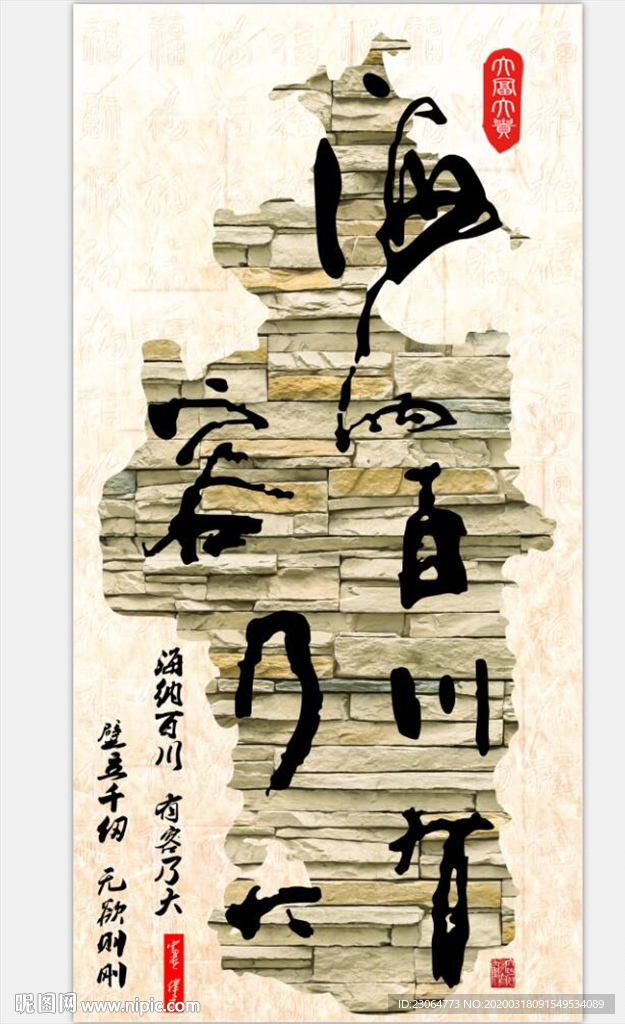 大富大貴
海纳百川有
容乃大
海纳百川 有容乃大
壁立千仞 无欲则刚
昵图网 www.nipic.com
ID:23064773 NO:20200318091549534089